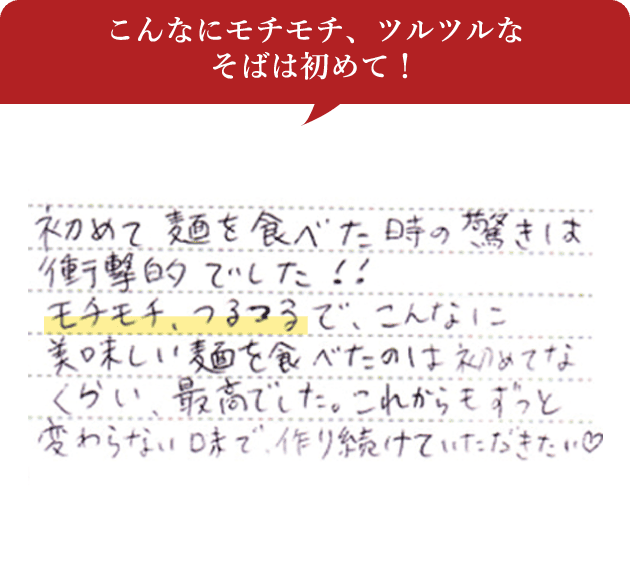 こんなにモチモチ、ツルツルな
そばは初めて！
初めて麺を食べた時の驚きは
衝撃的でした!!
モチモチ、つるつるで、こんなに
美味しい麺を食べたのは初めてな
くらい、最高でした。これからもずっと
変わらない味で、作り続けていただきたい♡